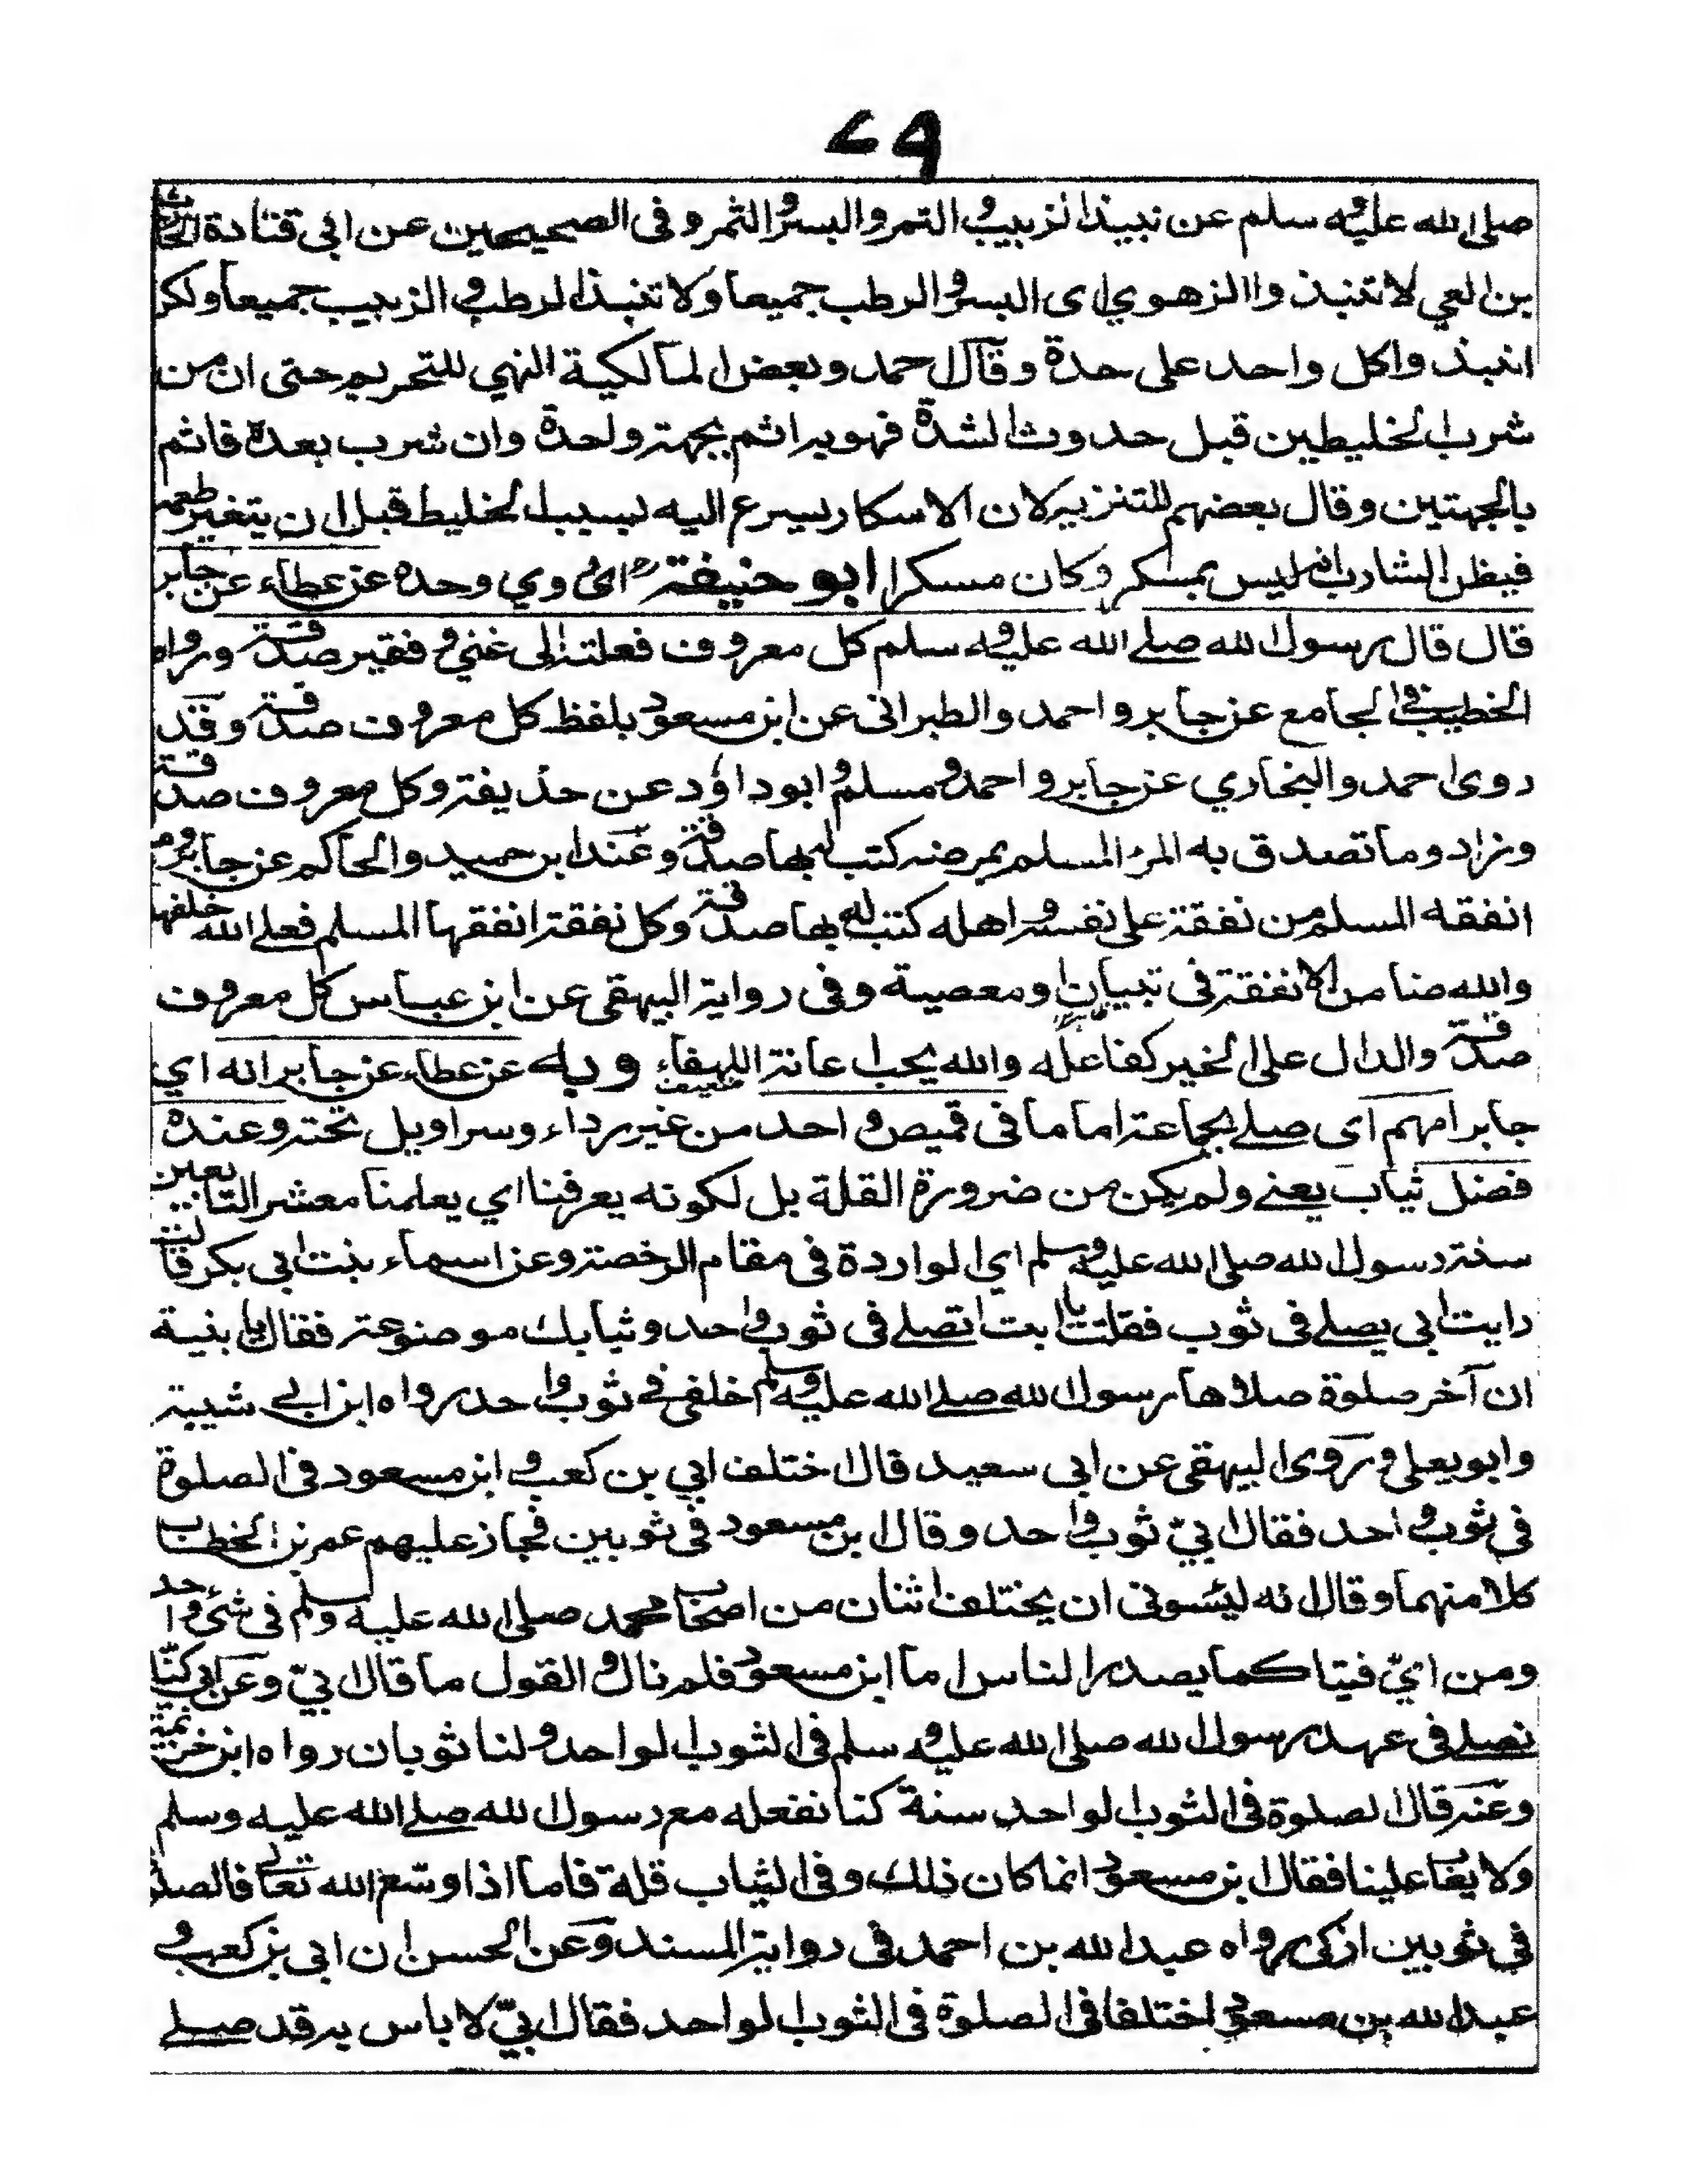 ٧٩
صلى الله عليه وسلم عن نبيذ الزبيب والتمر والبسر والتمر وفى الصحيحين عن ابى قتادة الحارث
بن ربعي لا تنبذوا الزهو اى البسر والرطب جميعا ولا تنبذ الرطب والزبيب جميعا ولكن
انبذوا كل واحد على حدة وقال احمد وبعض المالكية النهي للتحريم حتى ان من
شرب الخليطين قبل حدوث الشدة فهو يراثم بجهة واحدة وان شرب بعدة فاثم
بالجهتين وقال بعضهم للتنزيه لان الاسكار يسرع اليه بسبب الخليط قبل ان يتغير طعمه
فيظن الشارب انه ليس بمسكر وكان مسكرا ابو حنيفة اى روي وحده عن عطاء عن جابر
قال قال رسول الله صلى الله عليه وسلم كل معروف فعلته الى غني وفقير صدقة ورواه
الخطيب فى الجامع عن جابر واحمد والطبرانى عن ابن مسعود بلفظ كل معروف صدقة وقد
روى احمد والبخاري عن جابر واحمد ومسلم وابوداؤد عن حذيفة وكل معروف صدقة
وزاد وما تصدق به المرء المسلم يمرضه كتب له بها صدقة وعند ابن حميد والحاكم عن جابر وما
انفقه المسلم من نفقة على نفسه واهله كتب له بها صدقة وكل نفقة انفقها المسلم فعلى الله خلفها
والله ضامن الا نفقة فى تبيان ومعصية وفى رواية البيهقى عن ابن عباس كل معروف
صدقة والدال على الخير كفاعله والله يحب اعانة اللهفاء وبه عن عطاء عن جابر انه اي
جابر امهم اى صلى بجماعة اماما فى قميص واحد من غير رداء وسراويل تحته وعنده
فضل ثياب يعنى ولم يكن من ضرورة القلة بل لكونه يعرفنا اي يعلمنا معشر التابعين
سنة رسول الله صلى الله عليه وسلم اي الواردة فى مقام الرخصة وعن اسماء بنت ابى بكر قالت
رايت ابى يصلى فى ثوب فقلت يا ابت اتصلى فى ثوب واحد وثيابك موضوعة فقال يا بنية
ان آخر صلوة صلاها رسول الله صلى الله عليه وسلم خلفى فى ثوب واحد رواه ابن ابى شيبة
وابويعلى وروى البيهقى عن ابى سعيد قال اختلف ابي بن كعب وابن مسعود فى الصلوة
فى ثوب واحد فقال ابيّ ثوب واحد وقال ابن مسعود فى ثوبين فجاز عليهم عمر بن الخطاب
كلامنهما وقال انه ليسوئى ان يختلف اثنان من اصحاب محمد صلى الله عليه وسلم فى شئ واحد
ومن ايّ فتيا كما يصدر الناس اما ابن مسعود فلم نال والقول ما قال ابيّ وعن ابى كنا
نصلى فى عهد رسول الله صلى الله عليه وسلم فى الثوب الواحد ولنا ثوبان رواه ابن خزيمة
وعنه قال الصلوة فى الثوب الواحد سنة كنا نفعله مع رسول الله صلى الله عليه وسلم
ولا يعاب علينا فقال ابن مسعود انما كان ذلك وفى الثياب قلة فاما اذا وسع الله تعالى فالصلوة
فى ثوبين ازكى رواه عبد الله بن احمد فى رواية المسند وعن الحسن ان ابى بن كعب و
عبد الله بن مسعود اختلفا فى الصلوة فى الثوب الواحد فقال ابيّ لا باس به قد صلى